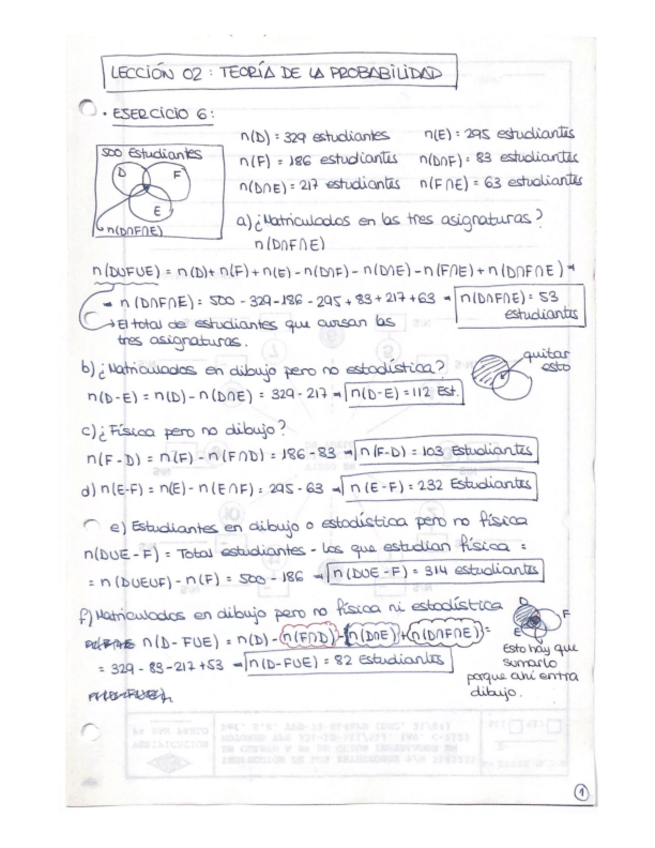 LECCIÓN 02: TEORÍA DE LA PROBABILIDAD
• ESERCICIO 6:
500 Estudiantes
D F
E
n(D∩F∩E)
n(D) = 329 estudiantes n(E) = 295 estudiantes
n(F) = 186 estudiantes n(D∩F) = 83 estudiantes
n(D∩E) = 217 estudiantes n(F∩E) = 63 estudiantes
a) ¿Matriculados en las tres asignaturas?
n(D∩F∩E)
n(DUFUE) = n(D) + n(F) + n(E) - n(D∩F) - n(D∩E) - n(F∩E) + n(D∩F∩E) →
→ n(D∩F∩E) = 500 - 329 - 186 - 295 + 83 + 217 + 63 → n(D∩F∩E) = 53
estudiantes
→ El total de estudiantes que cursan las
tres asignaturas.
b) ¿Matriculados en dibujo pero no estadística?
quitar
esto
n(D-E) = n(D) - n(D∩E) = 329 - 217 → n(D-E) = 112 Est.
c) ¿Física pero no dibujo?
n(F-D) = n(F) - n(F∩D) = 186 - 83 → n(F-D) = 103 Estudiantes
d) n(E-F) = n(E) - n(E∩F) = 295 - 63 → n(E-F) = 232 Estudiantes
e) Estudiantes en dibujo o estadística pero no física
n(DUE-F) = Total estudiantes - los que estudian física =
= n(DUEUF) - n(F) = 500 - 186 → n(DUE-F) = 314 estudiantes
f) Matriculados en dibujo pero no física ni estadística
D
F
E
n(D-FUE) = n(D) - n(F∩D) - n(D∩E) + n(D∩F∩E) =
= 329 - 83 - 217 + 53 → n(D-FUE) = 82 Estudiantes
Esto hay que
sumarlo
porque ahí entra
dibujo.
1